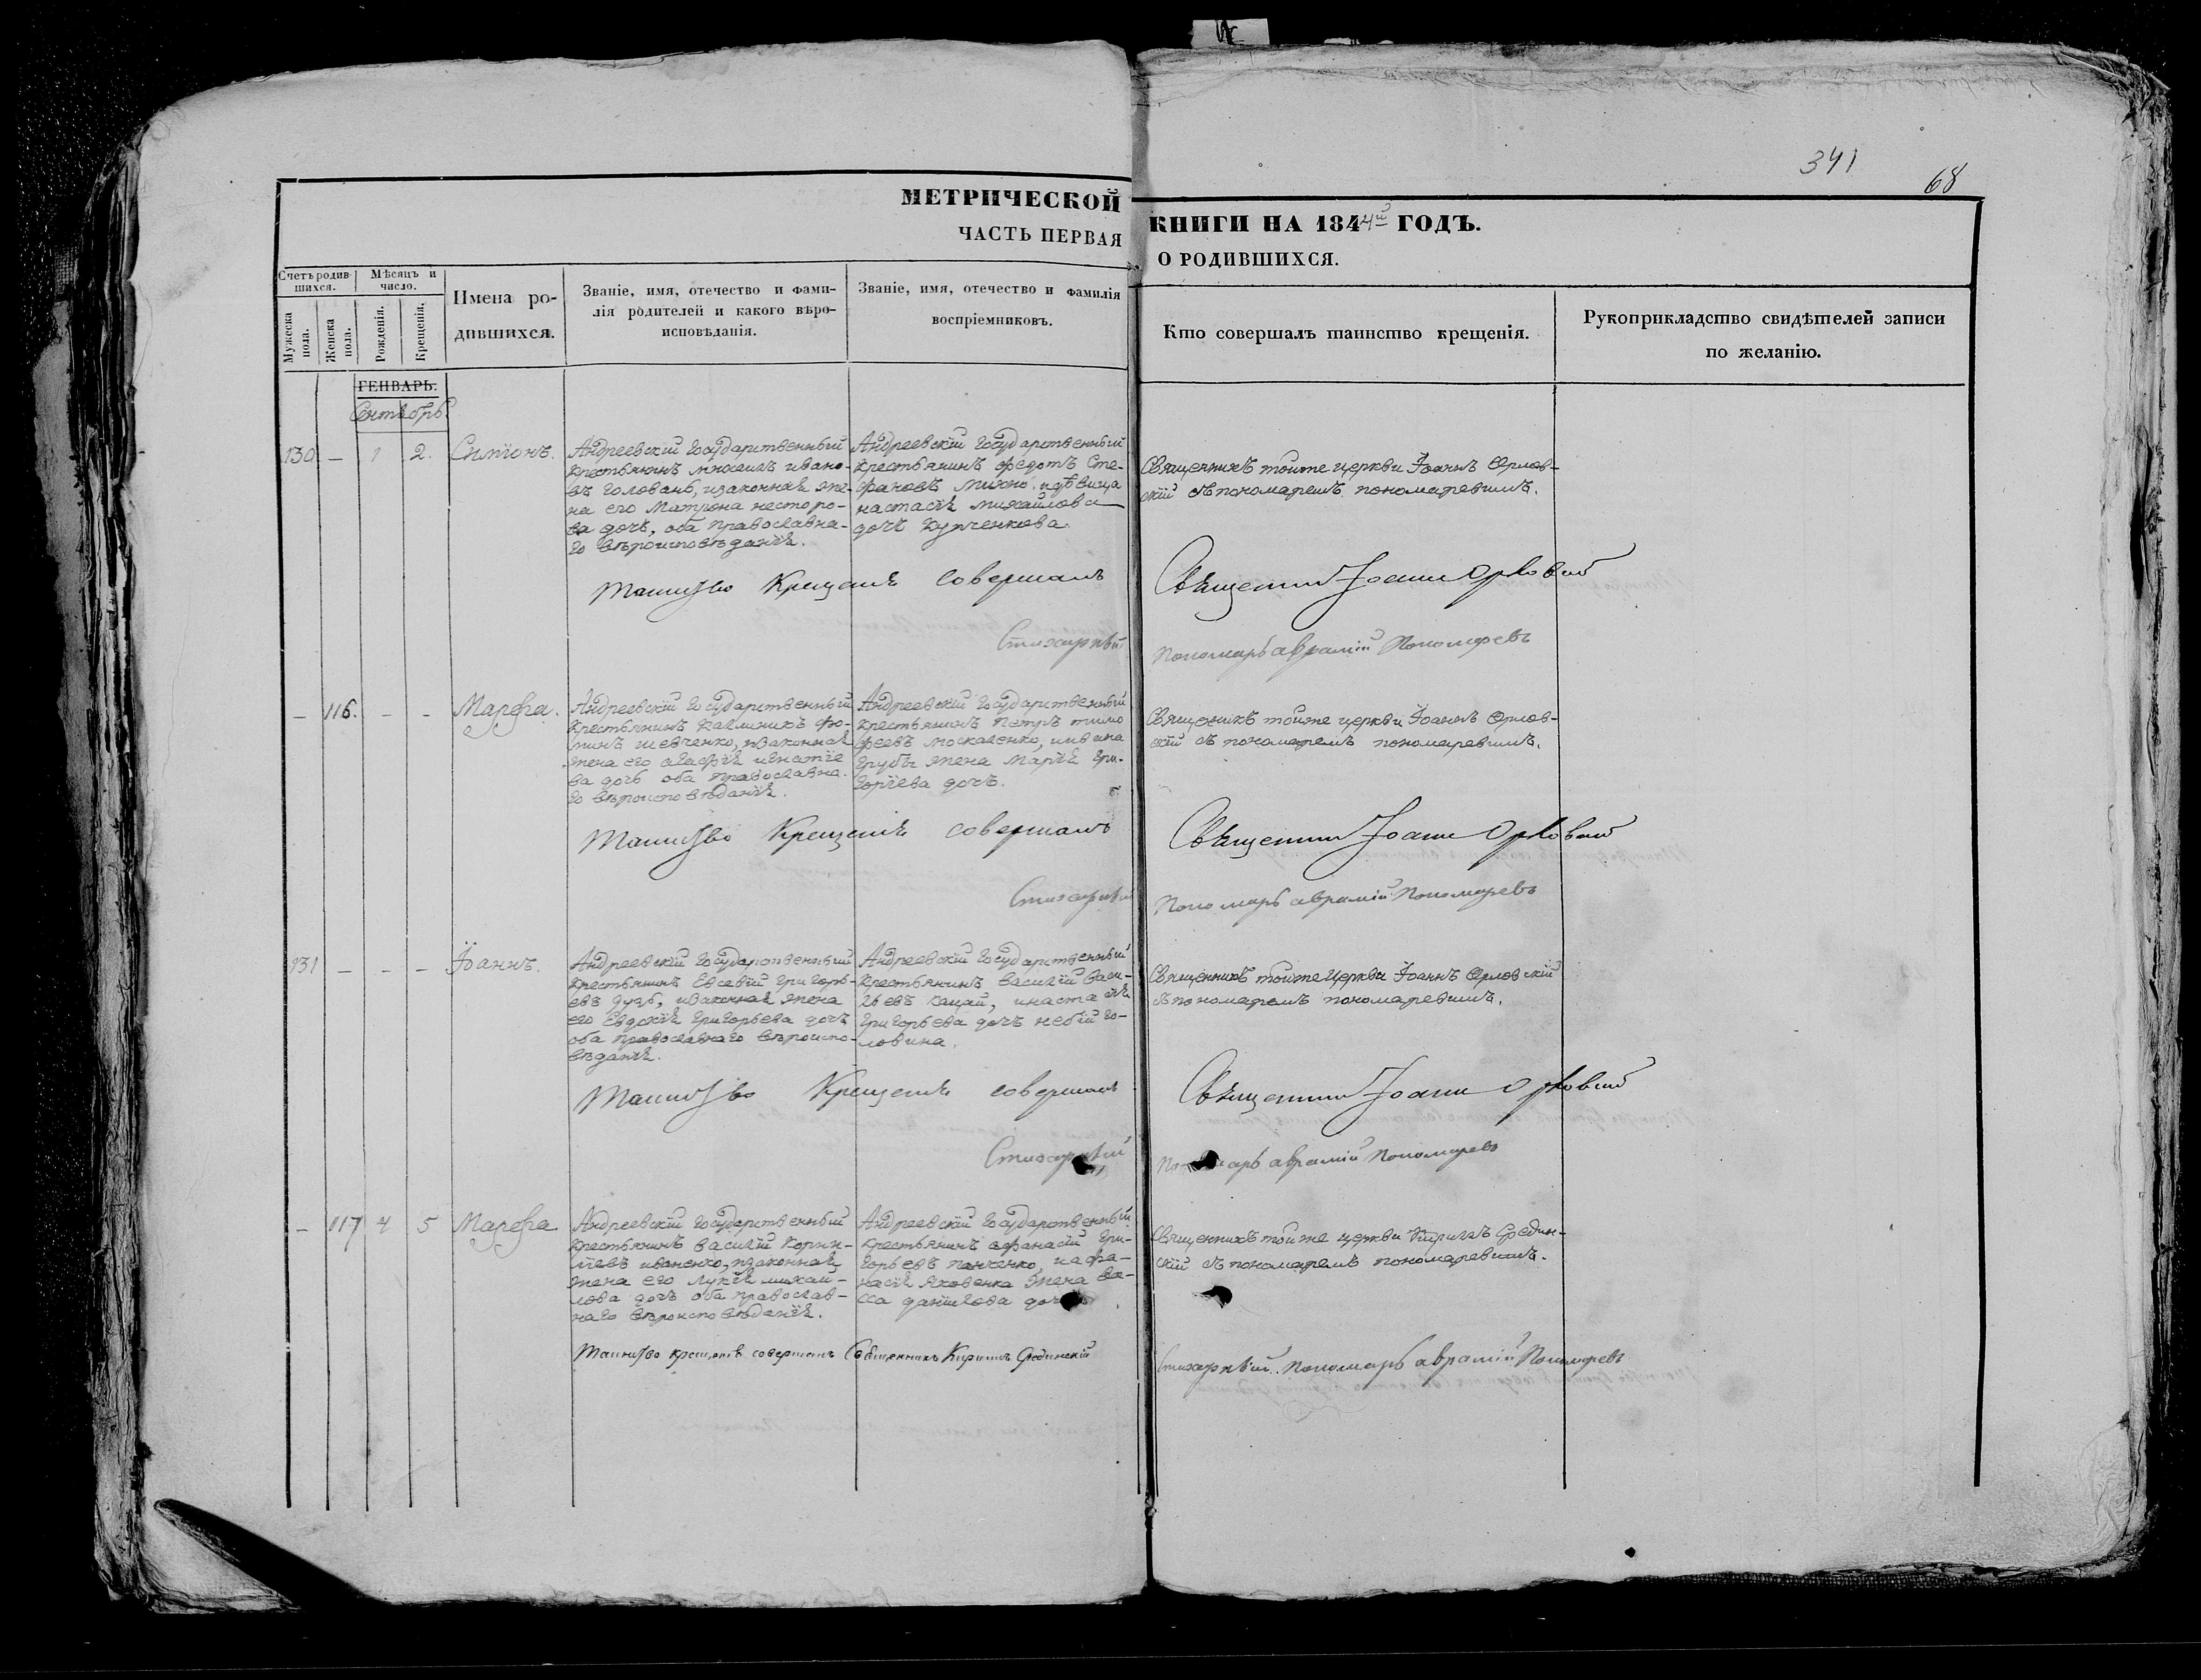 341
68
МЕТРИЧЕСКОЙ КНИГИ НА 1844й ГОДЪ.
ЧАСТЬ ПЕРВАЯ О РОДИВШИХСЯ.
Счетъ родив-
шихся.
Мужеска пола.
Женска пола.
Мѣсяцъ и
число.
Рожденія.
Крещенія.
Имена ро-
дившихся.
Званіе, имя, отечество и фами-
лія родителей и какого вѣро-
исповѣданія.
Званіе, имя, отечество и фамилія
воспріемниковъ.
Кто совершалъ таинство крещенія.
Рукоприкладство свидѣтелей записи
по желанію.
ГЕНВАРЬ.
Сентябрь
130 — 1 2. Симіонъ.
Андреевскій государственный
крестьянинъ ивано-
въ головань, изаконная же-
на его Матрона несторо-
ва дочь, оба православна-
го вѣроисповѣданія.
Андреевскій государственный
крестьянинъ федотъ Сте-
фановъ михно, идѣвица
настасія михайлова
дочь курченкова.
Священникъ тойже церкви Іоаннъ Орлов-
скій съ пономаремъ пономаревимъ.
Таинство Крещенія совершалъ Священник Іоанн Орловский
Стихарный Пономарь аврамій Пономаревъ
— 116. — — Марфа.
Андреевскій государственный
крестьянинъ калиникъ фо-
минъ шевченко, изаконная
жена его агафія игнатіе
ва дочь оба православна-
го вѣроисповѣданія.
Андреевскій государственный
крестьянинъ петръ тимо
феевъ москаленко, ивана
грубы жена Марія гри-
горіева дочь.
Священникъ тойже церкви Іоаннъ Орлов-
скій съ пономаремъ пономаревимъ.
Таинство Крещенія совершалъ Священник Іоанн Орловский
Стихарный Пономарь аврамій Пономаревъ
131 — — — Іоаннъ.
Андреевскій государственный
крестьянинъ Евсевій григорь-
евъ дузь, изаконная жена
его Евдокія григорьева дочь
оба православнаго вѣроиспо-
вѣданія.
Андреевскій государственный
крестьянинъ василій васи-
льевъ кацай, инастасія
григорьева дочь небій го-
ловина.
Священникъ тойже Церкви Іоаннъ Орловскій
съ пономаремъ пономаревимъ.
Таинство Крещенія совершалъ Священник Іоанн Орловский
Стихарный Пономарь аврамій Пономаревъ
— 117 4 5 Марфа
Андреевскій государственный
крестьянинъ василій корни-
ліевъ иваненко, изаконная
жена его лукія михай-
лова дочь оба православ-
наго вѣроисповѣданія.
Андреевскій государственный
крестьянинъ афанасій гри-
горьевъ панченко, иафа-
насія яковенка жена ва-
сса даніилова дочь.
Священникъ тойже церкви Кирилъ Средин-
скій съ пономаремъ пономаревимъ.
Таинство крещенія совершалъ Священникъ Кириллъ Срединскій
Стихарный Пономарь аврамій Пономаревъ